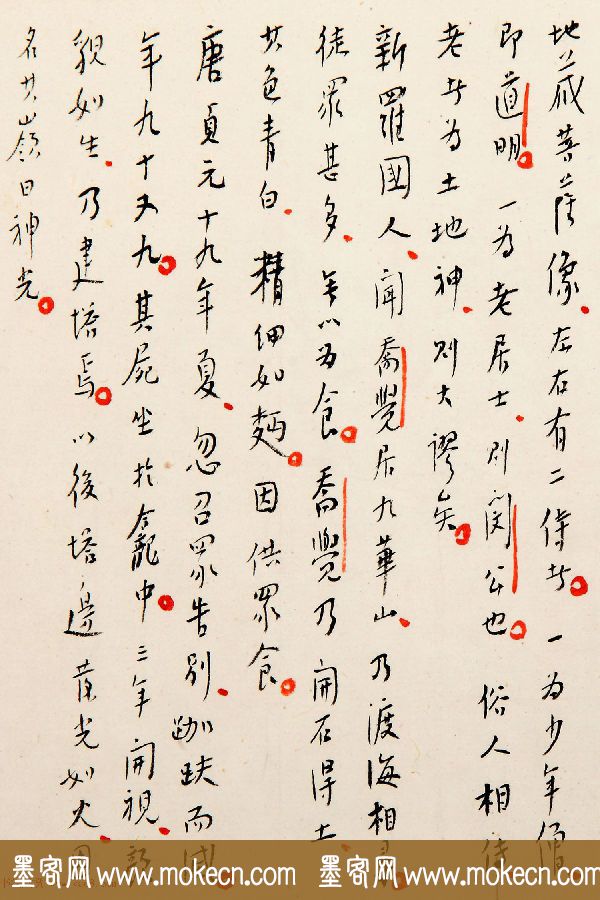 地藏菩薩像左右有二侍者一為少年僧
即道明一為老居士則閔公也俗人相傳
老者為土地神則大謬矣
新羅國人聞喬覺居九華山乃渡海相尋
徒眾甚多無以為食喬覺乃開石得土
其色青白精細如麪因供眾食
唐貞元十九年夏忽召眾告別跏趺而滅
年九十又九其屍坐於龕中三年開視
貌如生乃建塔焉以後塔邊黃光如火因
名其嶺曰神光
墨客网 www.mokecn.com 墨客网 www.mokecn.com